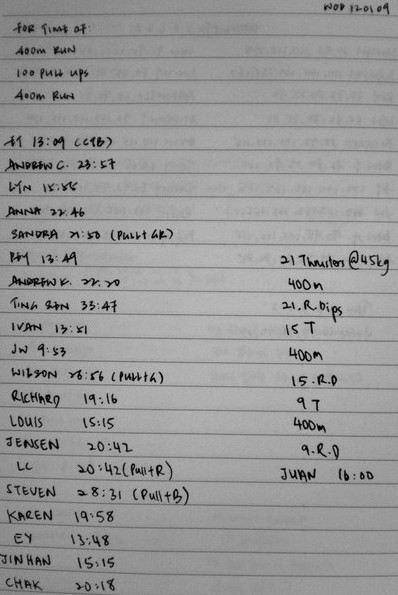 WOD 120109
FOR TIME OF:
400m RUN
100 PULL UPS
400m RUN
13:09 (CTB)
ANDREW C. 23:57
LYN 15:55
ANNA 22:46
SANDRA 21:50 (PULL+GR)
PEY 13:49
ANDREW K. 22:20
TING SEN 33:47
IVAN 13:51
JW 9:53
WILSON 26:56 (PULL+G)
RICHARD 19:16
LOUIS 15:15
JENSEN 20:42
LC 20:42 (Pull+R)
STEVEN 28:31 (Pull+B)
KAREN 19:58
EY 13:48
JINHAN 15:15
CHAK 20:18
21 Thrusters @45kg
400m
21.R.Dips
15 T
400m
15.R.D
9 T
400m
9.R.D
JUAN 16:00